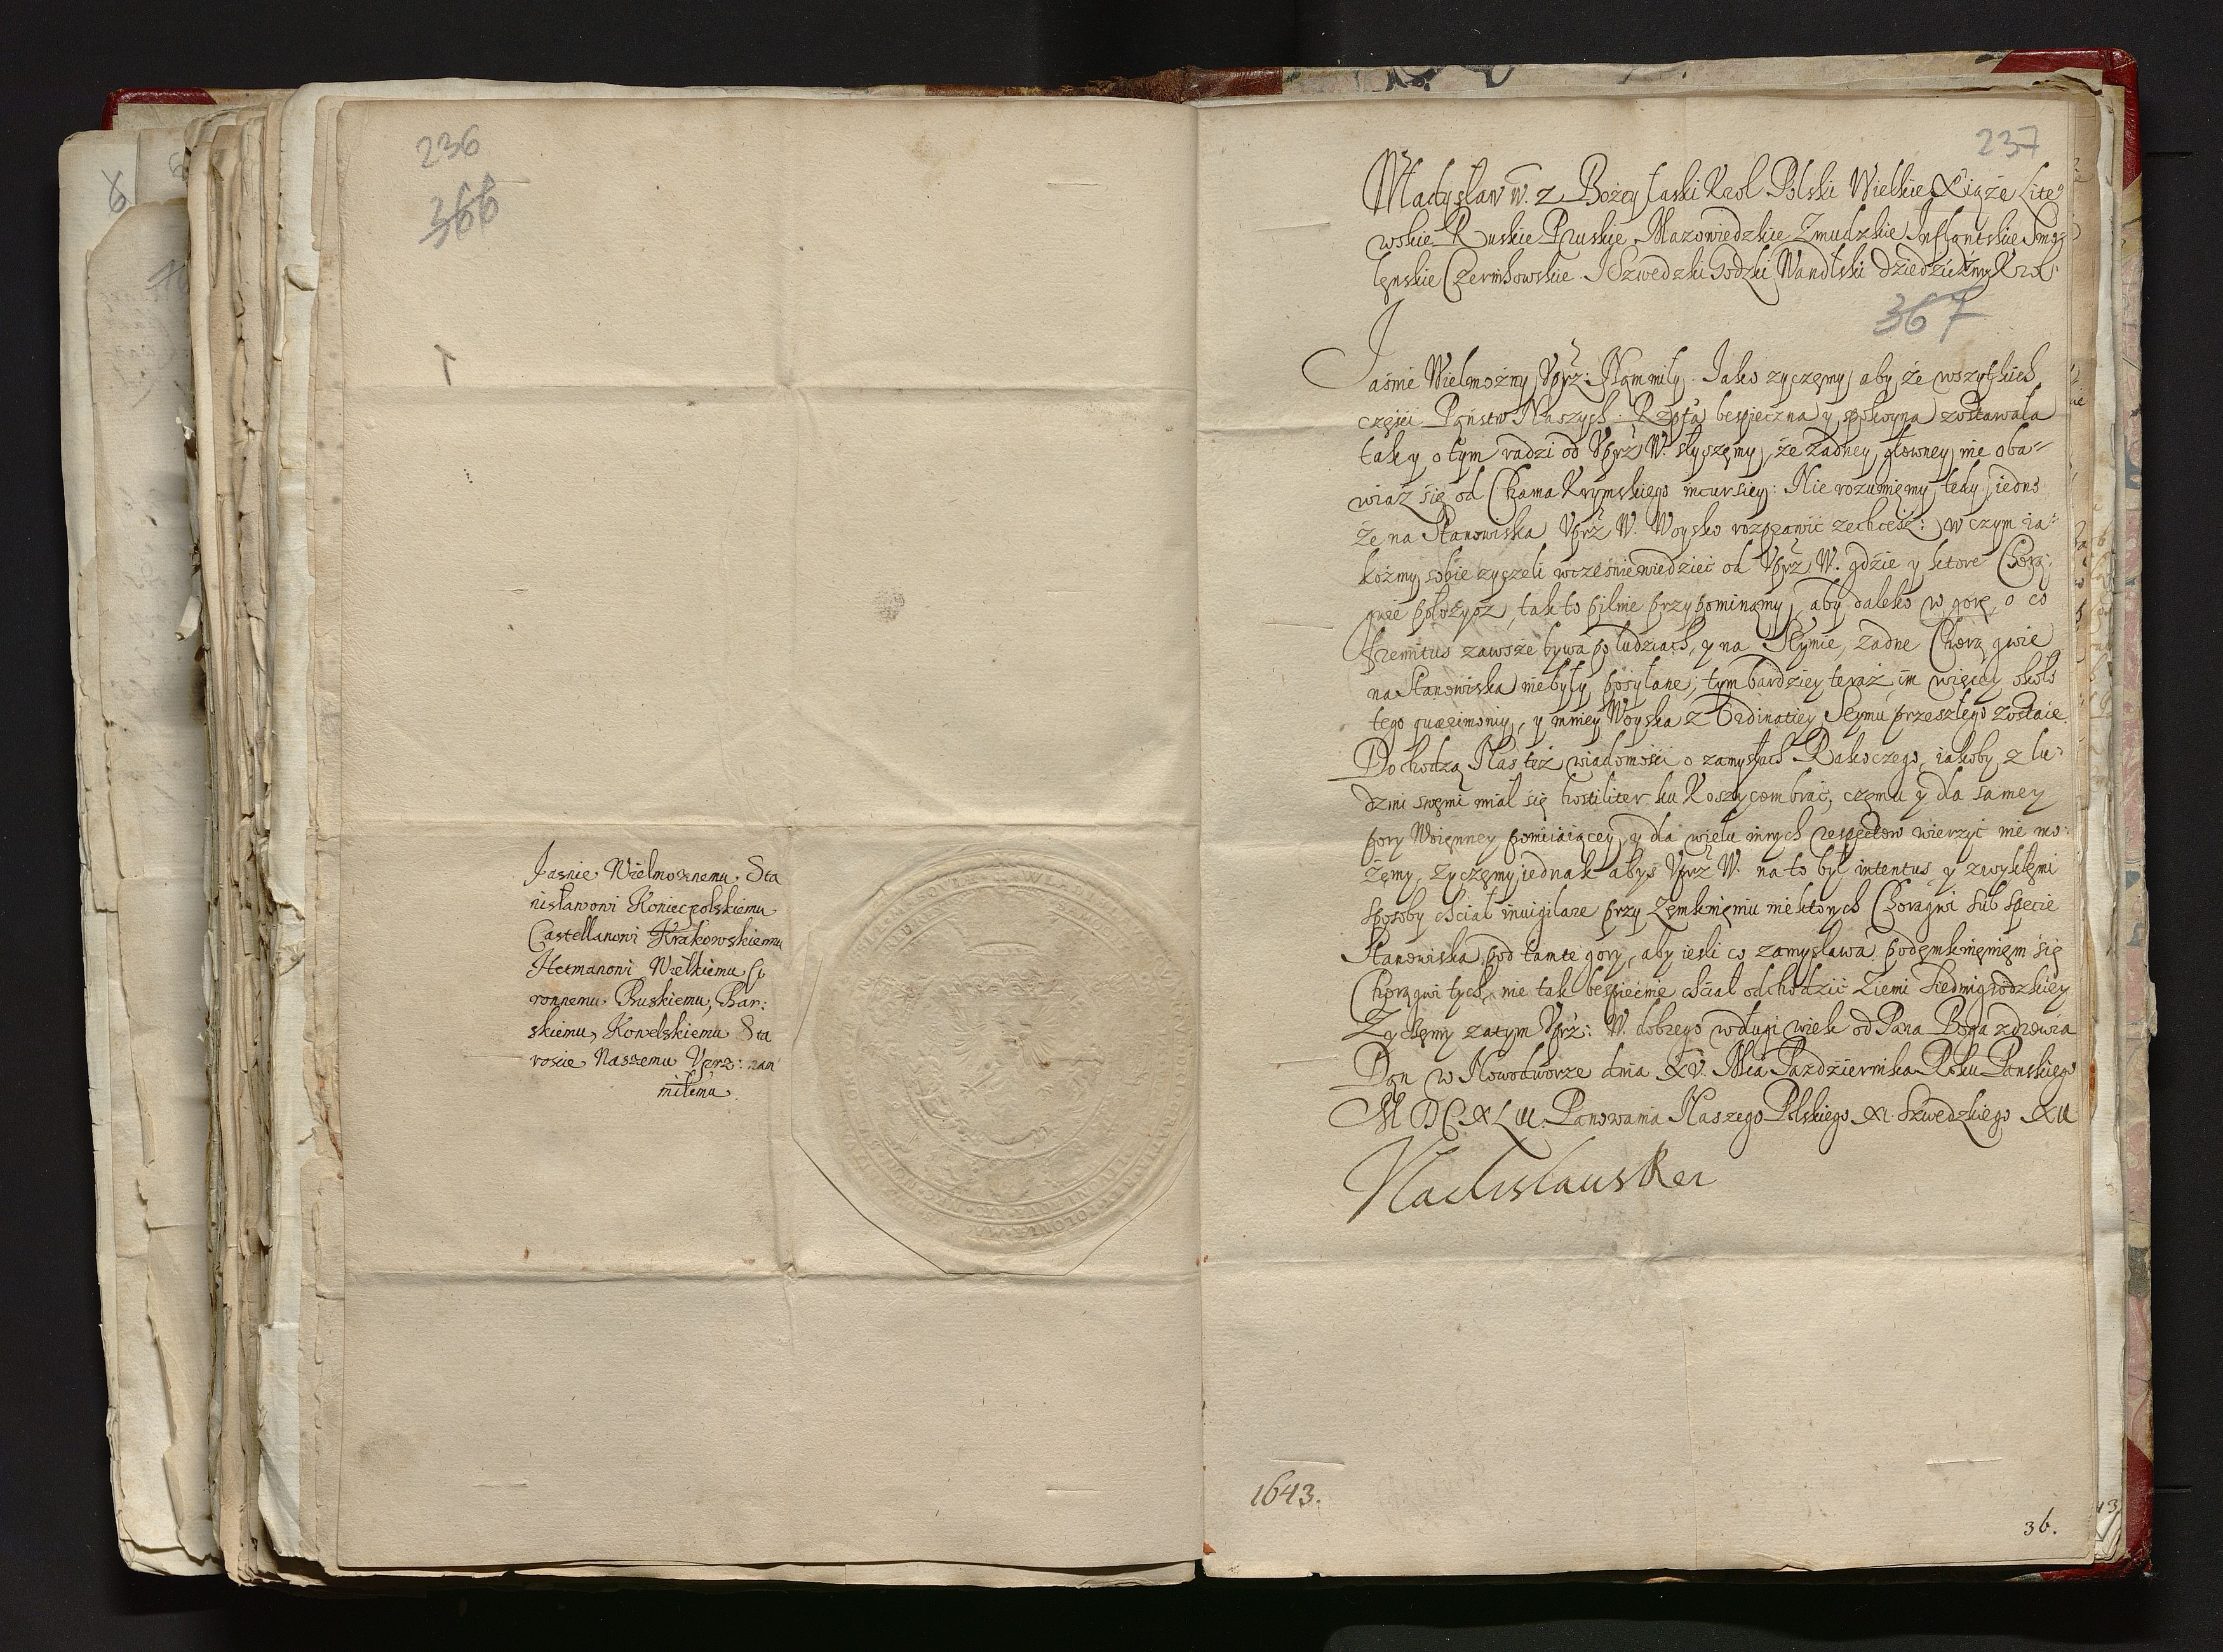 236
366
Jasnie Wielmoznemu Sta
nisławowi Koniecpolskiemu
Castellanowi Krakowskiemu
Hetmanowi Wielkiemu Co
ronnemu Ruskiemu, Bar:
skiemu, Kowelskiemu Sta
roscie Naszemu Vprz: nam
miłemu.
237
Władysław IV. z Bożey łaski Krol Polski Wielkie Xiąże Lite
wskie Ruskie Pruskie Mazowiedzkie Zmudzkie Inflantskie Smo
lenskie Czernihowskie. I Szwedzki Godzki Wandlski dziedziczny Krol.
367
Jaśnie Wielmożny Vprz: Nam miły. Jako zyczemy aby ze wszytkich
części Państw Naszych Rzpta bespieczna y spokoyna zostawała
tak y o tym radzi od Vprz W. słyszemy, że żadney główney nie oba-
wiaż się od Chama Krymskiego incursiey: Nie rozumiemy tedy iedno
że na Stanowiska Vprz W. Woysko rozprawić zechcesz: w czym ia-
kożmy sobie zyczeli wcześnie wiedzieć od Vprz W. gdzie y ktore Chorą:
gwie położysz, tak to pilnie przypominamy, aby daleko w gorę, o co
fremitus zawsze bywa po ludziach, y na Seymie, żadne Chorągwie
na Stanowiska nie były posyłane; tym bardziey teraz im więcey około
tego quaerimoniy, y mniey Woyska z Ordinatiey Seymu przeszłego zostaie.
Dochodzą Nas też wiadomości o zamysłach Rakoczego, iakoby z lu-
dzmi swemi miał się hostiliter ku Koszycom brać, czemu y dla samey
pory Woienney pomiiaiącey, y dla wielu inych respectow wierzyć nie mo:
żemy, Zyczemy iednak abys Vprz W. na to był intentus y zwykłemi
sposoby chciał invigilare przy zemknieniu niektorych Chorągwi sub specie
Stanowiska pod tamte gory, aby iesli co zamysława podemknieniem się
Chorągwi tych, nie tak bespiecznie chciał odchodzić Ziemi Siedmigrodzkiey
Zyczemy zatym Vprz: W. dobrego w długi wiek od Pana Boga zdrowia
Dan w Nowodworze dnia XV. Mca Pazdziernika Roku Panskiego
M DC XLIII. Panowania Naszego Polskiego XI. Szwedzkiego XII
Vladislaus Rex
1643.
36.